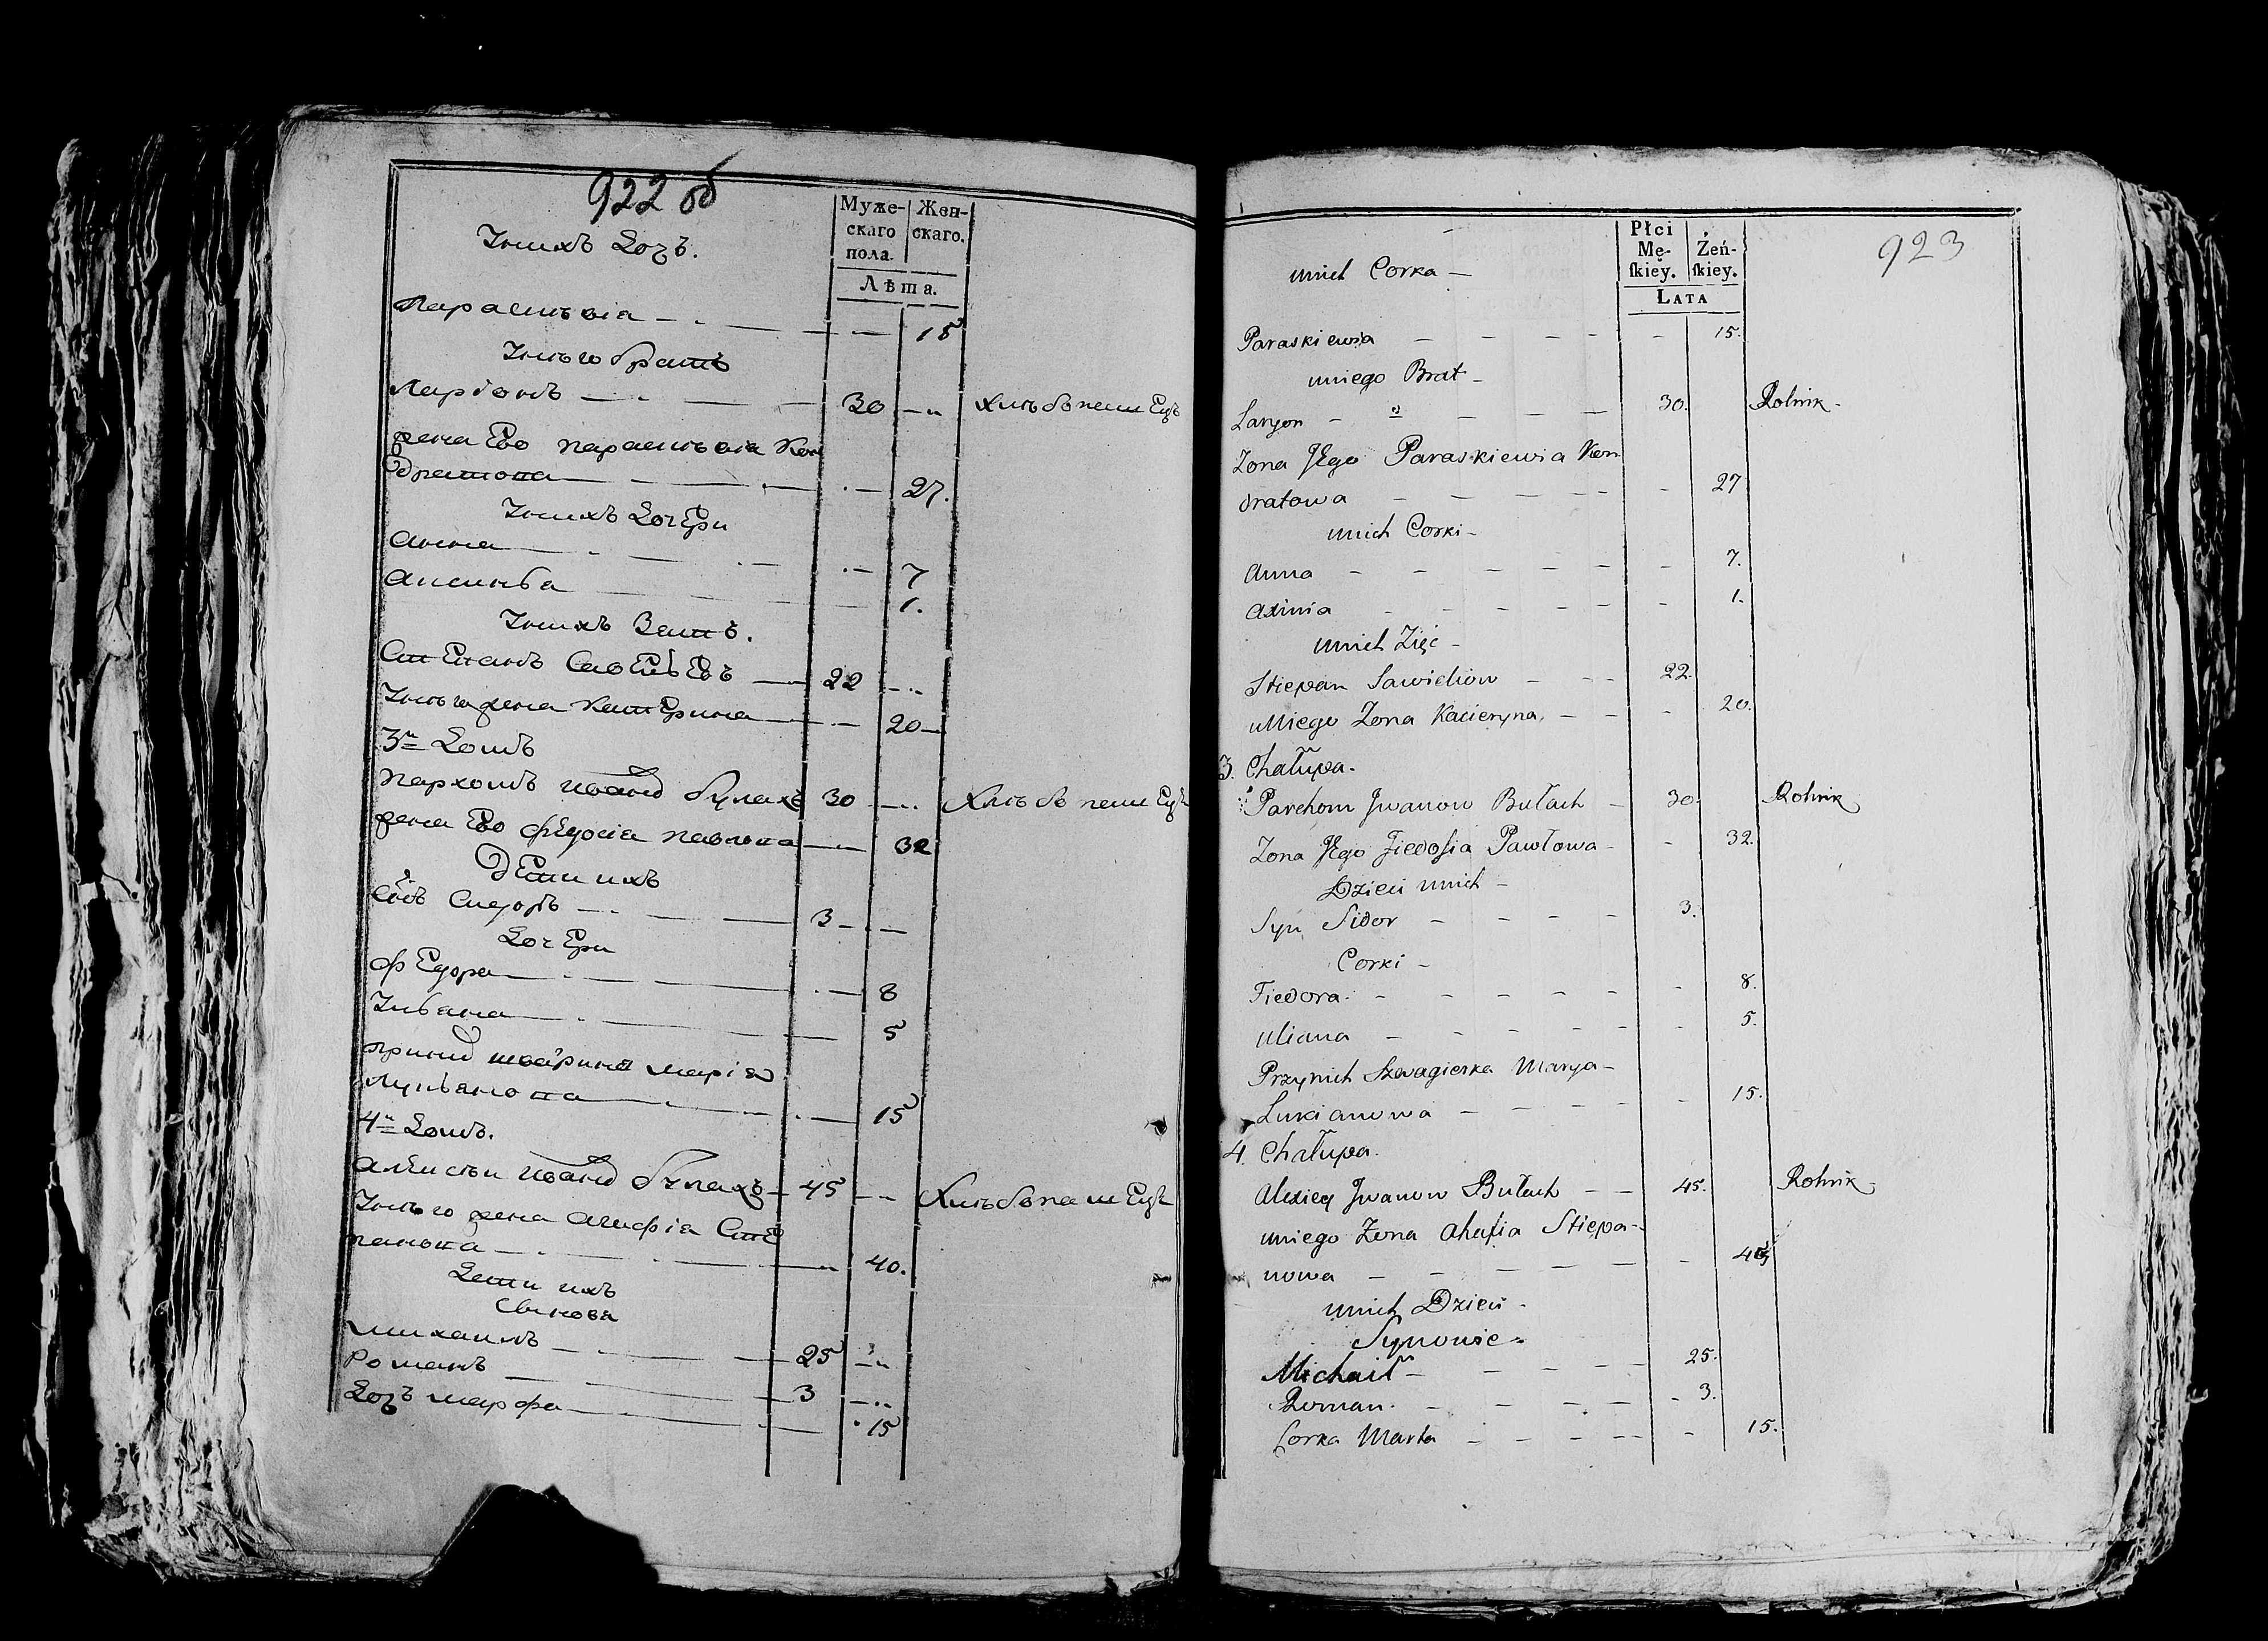 922 об
Муже- Жен-
скаго скаго.
пола.
Лѣта.
Унихъ Дочъ.
Парасковіа 15
Унего братъ
Ларіонъ 30 Хлѣбопашецъ
Жена Ево Парасковіа Кон
дратова 27.
Унихъ Дочери
Анна 7
Аксинья 1.
Унихъ Зеть.
Степанъ Савельевъ 22
Унего жена Катерина 20
3й Домъ
Пархомъ Ивановъ Булахъ 30 Хлѣбопашецъ
Жена Ево Федосіа Павлова 32
Дети ихъ
Сынъ Сидоръ 3
Дочери
Федора 8
Ульяна 5
При нихъ Маріа
Лукьянова 15
4й Домъ.
Алексѣй Ивановъ Булахъ 45 Хлѣбопашецъ
Унего жена Агафіа Сте
панова 40.
Дети ихъ
Сынова
Михаилъ 25
Романъ 3
Дочъ Марфа 15
923
Płci
Mę- Żeń-
ſkiey. ſkiey.
LATA
unich Corka –
Paraskiewia – – – – – 15.
uniego Brat –
Laryon – – – – 30. Rolnik –
Zona Jego Paraskiewia Kon
dratowa – – – – – 27
unich Corki –
Anna – – – – – – 7.
Axinia – – – – – 1.
unich Zięc –
Stiepan Sawieliow – – – 22.
uNiego Zona Kacieryna. – – – 20.
3. Chałupa.
Parchom Jwanow Bułach – 30. Rolnik
Zona Jego Fiedoſia Pawłowa – – 32.
Dzieci unich –
Syn Sidor – – – – 3.
Corki –
Fiedora. – – – – – – 8.
uliana – – – – – – 5.
Przynich Szwagierka Marya –
Lukianowa – – – – – 15.
4. Chałupa.
Alexiey Jwanow Bułach – – 45. Rolnik
uniego Zona Ahafia Stiepa–
nowa – – – – – –
unich Dzieci –
Synowie –
Michaił – – – – 25.
Roman. – – – – – 3.
Corka Marta – – – – – – 15.